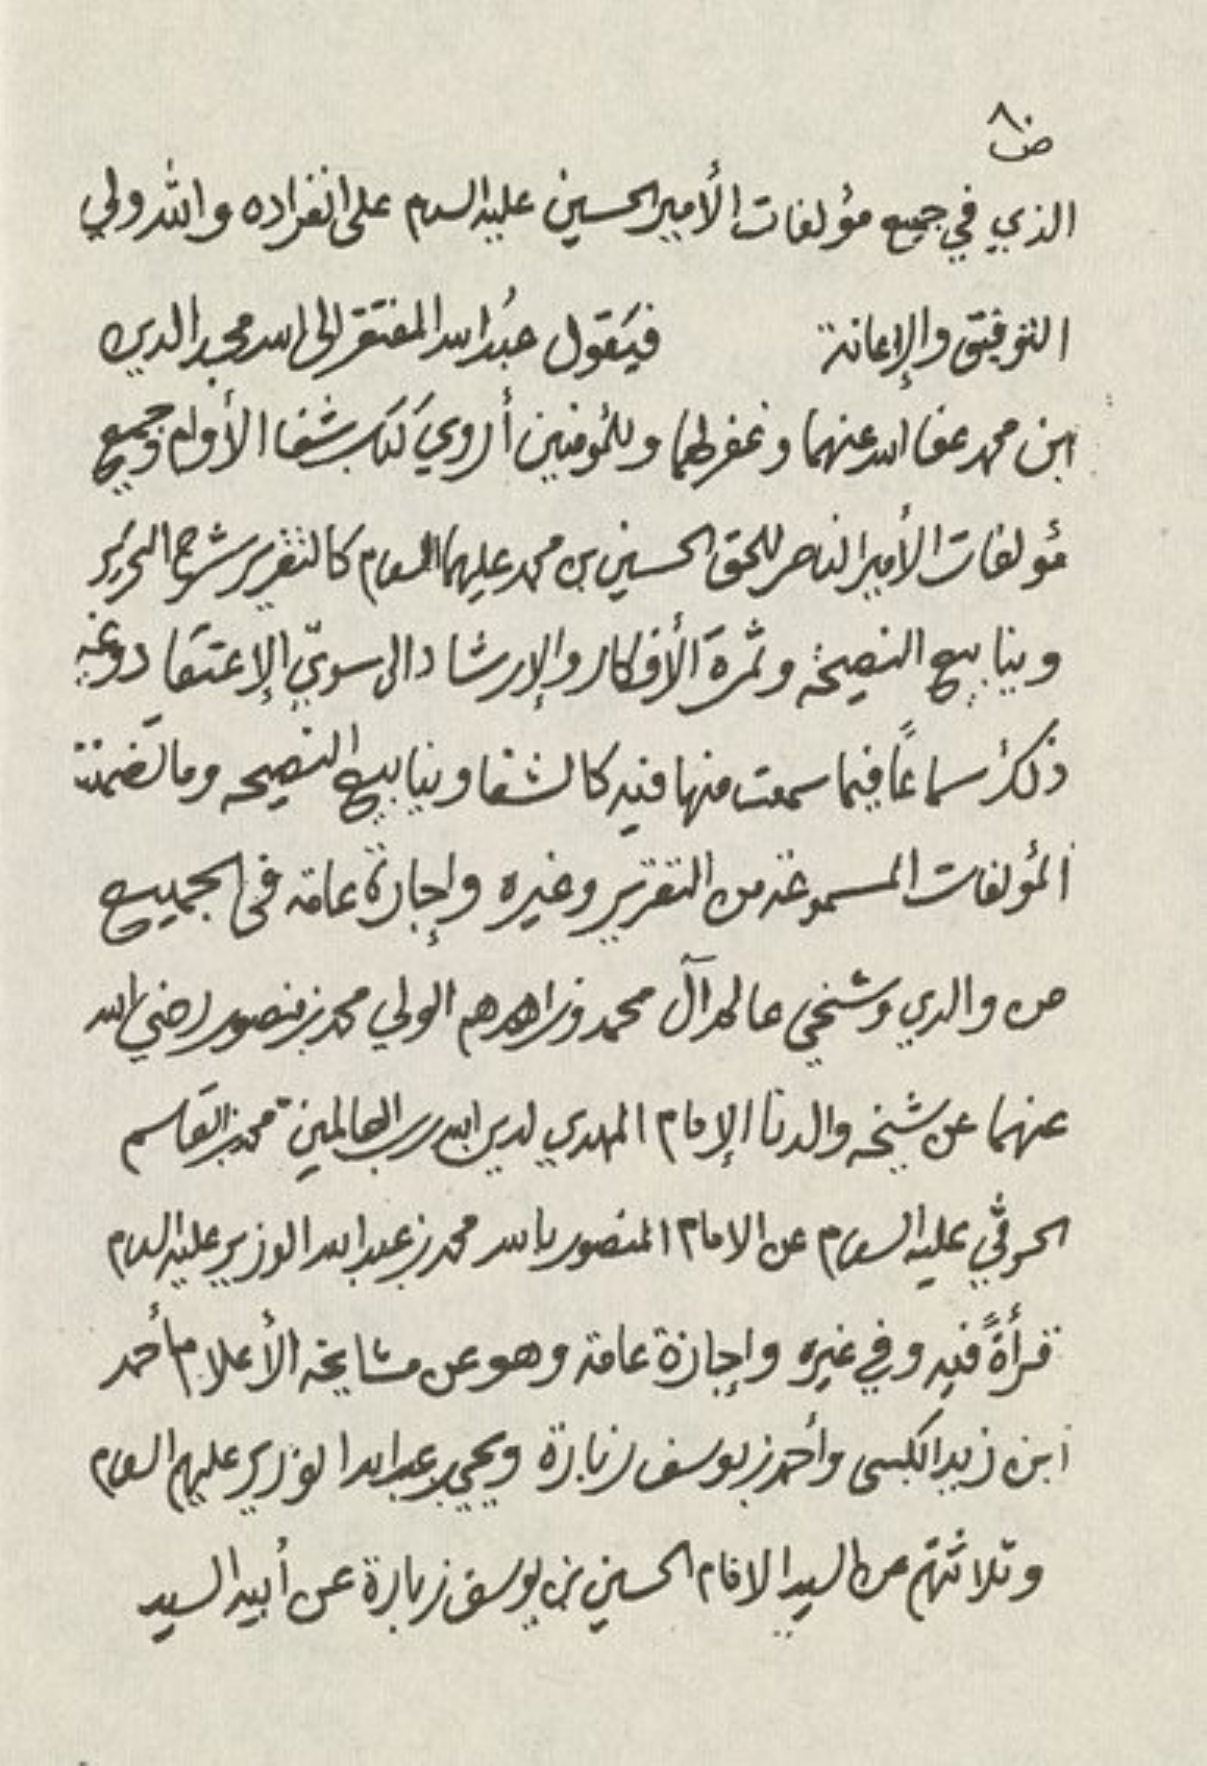 ص ٨
الذي في جميع مؤلفات الأمير الحسين عليه السلام على انفراده والله ولي
التوفيق والإعانة فيَقول عبدُ الله المفتقر الى الله مجد الدين
ابن محمد عفا الله عنهما وغفر لهما وللمؤمنين أروي كتاب شفا الأوام وجميع
مؤلفات الأمير الناصر للحق الحسين بن محمد عليهما السلام كالتقرير شرح التحرير
وينابيع النصيحة وثمرة الأفكار والإرشاد الى سويّ الإعتقاد وغيره
ذلك سماعًا فيما سمعت منها فيه كالشفا وينابيع النصيحه وما تضمنته
المؤلفات المسموعة من التقرير وغيره وإجازة عامة في الجميع
من والدي وشيخي عالم آل محمد وزاهدهم الولي محمد بن منصور رضي الله
عنهما عن شيخه والدنا الإمام المهدي لدين الله رب العالمين محمد بن القاسم
الحوثي عليه السلام عن الامام المنصور بالله محمد بن عبد الله الوزير عليه السلام
قرأةً فيه وفي غيره وإجازة عامة وهو عن مشايخه الأعلام أحمد
ابن زيد الكبسي وأحمد بن يوسف زبارة ويحيى بن عبد الله الوزير عليهم السلام
وثلاثتهم عن السيد الامام الحسين بن يوسف زبارة عن أبيه السيد